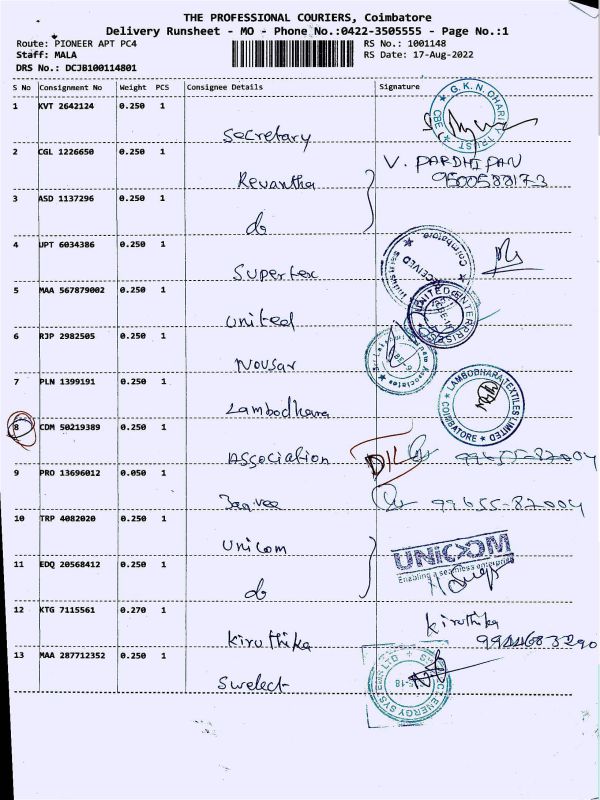 THE PROFESSIONAL COURIERS, Coimbatore
Delivery Runsheet - MO - Phone No.:0422-3505555 - Page No.:1
Route: PIONEER APT PC4 RS No.: 1001148
Staff: MALA RS Date: 17-Aug-2022
DRS No.: DCJB100114801
S No Consignment No Weight PCS Consignee Details Signature
1 KVT 2642124 0.250 1
G.K.N. CHARITY TRUST CBE
Secretary
2 CGL 1226650 0.250 1
V. PARDHIPAN
Revantha 9500588173
3 ASD 1137296 0.250 1
do
4 UPT 6034386 0.250 1
Coimbatore RECEIVED
Supertex
5 MAA 567879002 0.250 1
UNITED ENTERPRISES
United
6 RJP 2982505 0.250 1
Associates
Nousar
7 PLN 1399191 0.250 1
LAMBODHARA TEXTILES LIMITED COIMBATORE
Lambodhara
8 CDM 50219389 0.250 1
Association D/L 99655-82004
9 PRO 13696012 0.050 1
99655-82004
10 TRP 4082020 0.250 1
Unicom UNICOM
Enabling a seamless enterprise
11 EDQ 20568412 0.250 1
do
12 KTG 7115561 0.270 1
Kiruthika
Kiruthika 9944683290
13 MAA 287712352 0.250 1
ENERGY SYSTEMS LTD
Swelect